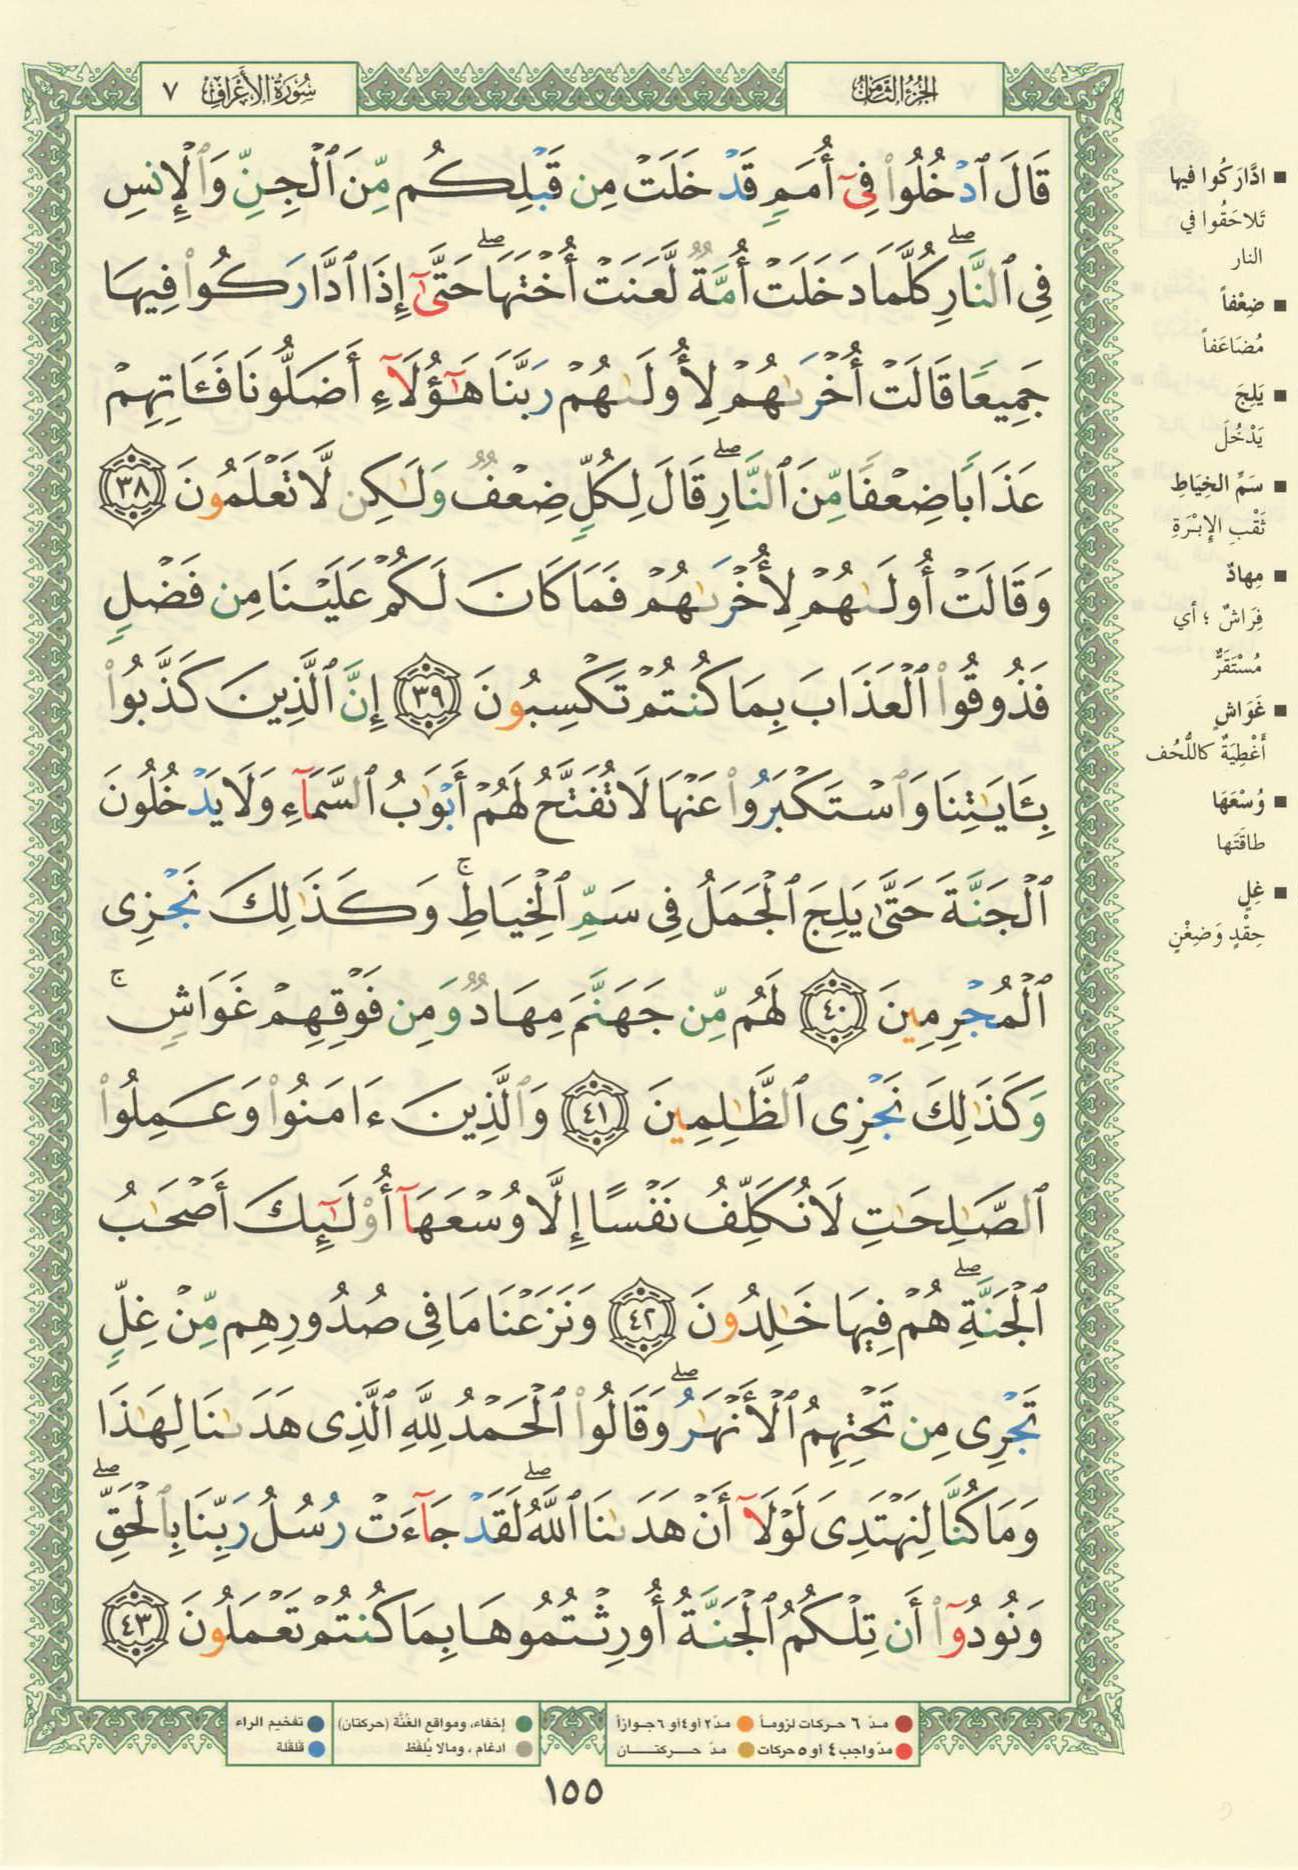 سُورَةُ الأَعْرَاف ٧
الجُزْءُ الثَّامِنُ
قَالَ ٱدْخُلُوا۟ فِىٓ أُمَمٍ قَدْ خَلَتْ مِن قَبْلِكُم مِّنَ ٱلْجِنِّ وَٱلْإِنسِ
فِى ٱلنَّارِ ۖ كُلَّمَا دَخَلَتْ أُمَّةٌ لَّعَنَتْ أُخْتَهَا ۖ حَتَّىٰٓ إِذَا ٱدَّارَكُوا۟ فِيهَا
جَمِيعًا قَالَتْ أُخْرَىٰهُمْ لِأُولَىٰهُمْ رَبَّنَا هَـٰٓؤُلَآءِ أَضَلُّونَا فَـَٔاتِهِمْ
عَذَابًا ضِعْفًا مِّنَ ٱلنَّارِ ۖ قَالَ لِكُلٍّ ضِعْفٌ وَلَـٰكِن لَّا تَعْلَمُونَ ٣٨
وَقَالَتْ أُولَىٰهُمْ لِأُخْرَىٰهُمْ فَمَا كَانَ لَكُمْ عَلَيْنَا مِن فَضْلٍ
فَذُوقُوا۟ ٱلْعَذَابَ بِمَا كُنتُمْ تَكْسِبُونَ ٣٩ إِنَّ ٱلَّذِينَ كَذَّبُوا۟
بِـَٔايَـٰتِنَا وَٱسْتَكْبَرُوا۟ عَنْهَا لَا تُفَتَّحُ لَهُمْ أَبْوَٰبُ ٱلسَّمَآءِ وَلَا يَدْخُلُونَ
ٱلْجَنَّةَ حَتَّىٰ يَلِجَ ٱلْجَمَلُ فِى سَمِّ ٱلْخِيَاطِ ۚ وَكَذَٰلِكَ نَجْزِى
ٱلْمُجْرِمِينَ ٤٠ لَهُم مِّن جَهَنَّمَ مِهَادٌ وَمِن فَوْقِهِمْ غَوَاشٍ ۚ
وَكَذَٰلِكَ نَجْزِى ٱلظَّـٰلِمِينَ ٤١ وَٱلَّذِينَ ءَامَنُوا۟ وَعَمِلُوا۟
ٱلصَّـٰلِحَـٰتِ لَا نُكَلِّفُ نَفْسًا إِلَّا وُسْعَهَآ أُو۟لَـٰٓئِكَ أَصْحَـٰبُ
ٱلْجَنَّةِ ۖ هُمْ فِيهَا خَـٰلِدُونَ ٤٢ وَنَزَعْنَا مَا فِى صُدُورِهِم مِّنْ غِلٍّ
تَجْرِى مِن تَحْتِهِمُ ٱلْأَنْهَـٰرُ ۖ وَقَالُوا۟ ٱلْحَمْدُ لِلَّهِ ٱلَّذِى هَدَىٰنَا لِهَـٰذَا
وَمَا كُنَّا لِنَهْتَدِىَ لَوْلَآ أَنْ هَدَىٰنَا ٱللَّهُ ۖ لَقَدْ جَآءَتْ رُسُلُ رَبِّنَا بِٱلْحَقِّ ۖ
وَنُودُوٓا۟ أَن تِلْكُمُ ٱلْجَنَّةُ أُورِثْتُمُوهَا بِمَا كُنتُمْ تَعْمَلُونَ ٤٣
ادَّارَكُوا فيها
تَلاحَقُوا في
النار
ضِعْفاً
مُضَاعَفاً
يَلِجَ
يَدْخُلَ
سَمِّ الخِيَاطِ
ثَقْبِ الإِبْرَةِ
مِهادٌ
فِرَاشٌ ؛ أي
مُسْتَقَرٌّ
غَوَاشٍ
أَغْطِيَةٌ كاللُّحُف
وُسْعَهَا
طاقَتَها
غِلٍ
حِقْدٍ وَضِغْنٍ
مدّ ٦ حركات لزوماً
مدّ ٢ أو ٤ أو ٦ جوازاً
إخفاء، ومواقع الغُنَّة (حركتان)
تفخيم الراء
مدّ واجب ٤ أو ٥ حركات
مدّ حركتان
ادغام ، وما لا يُلفَظ
قلقلة
١٥٥